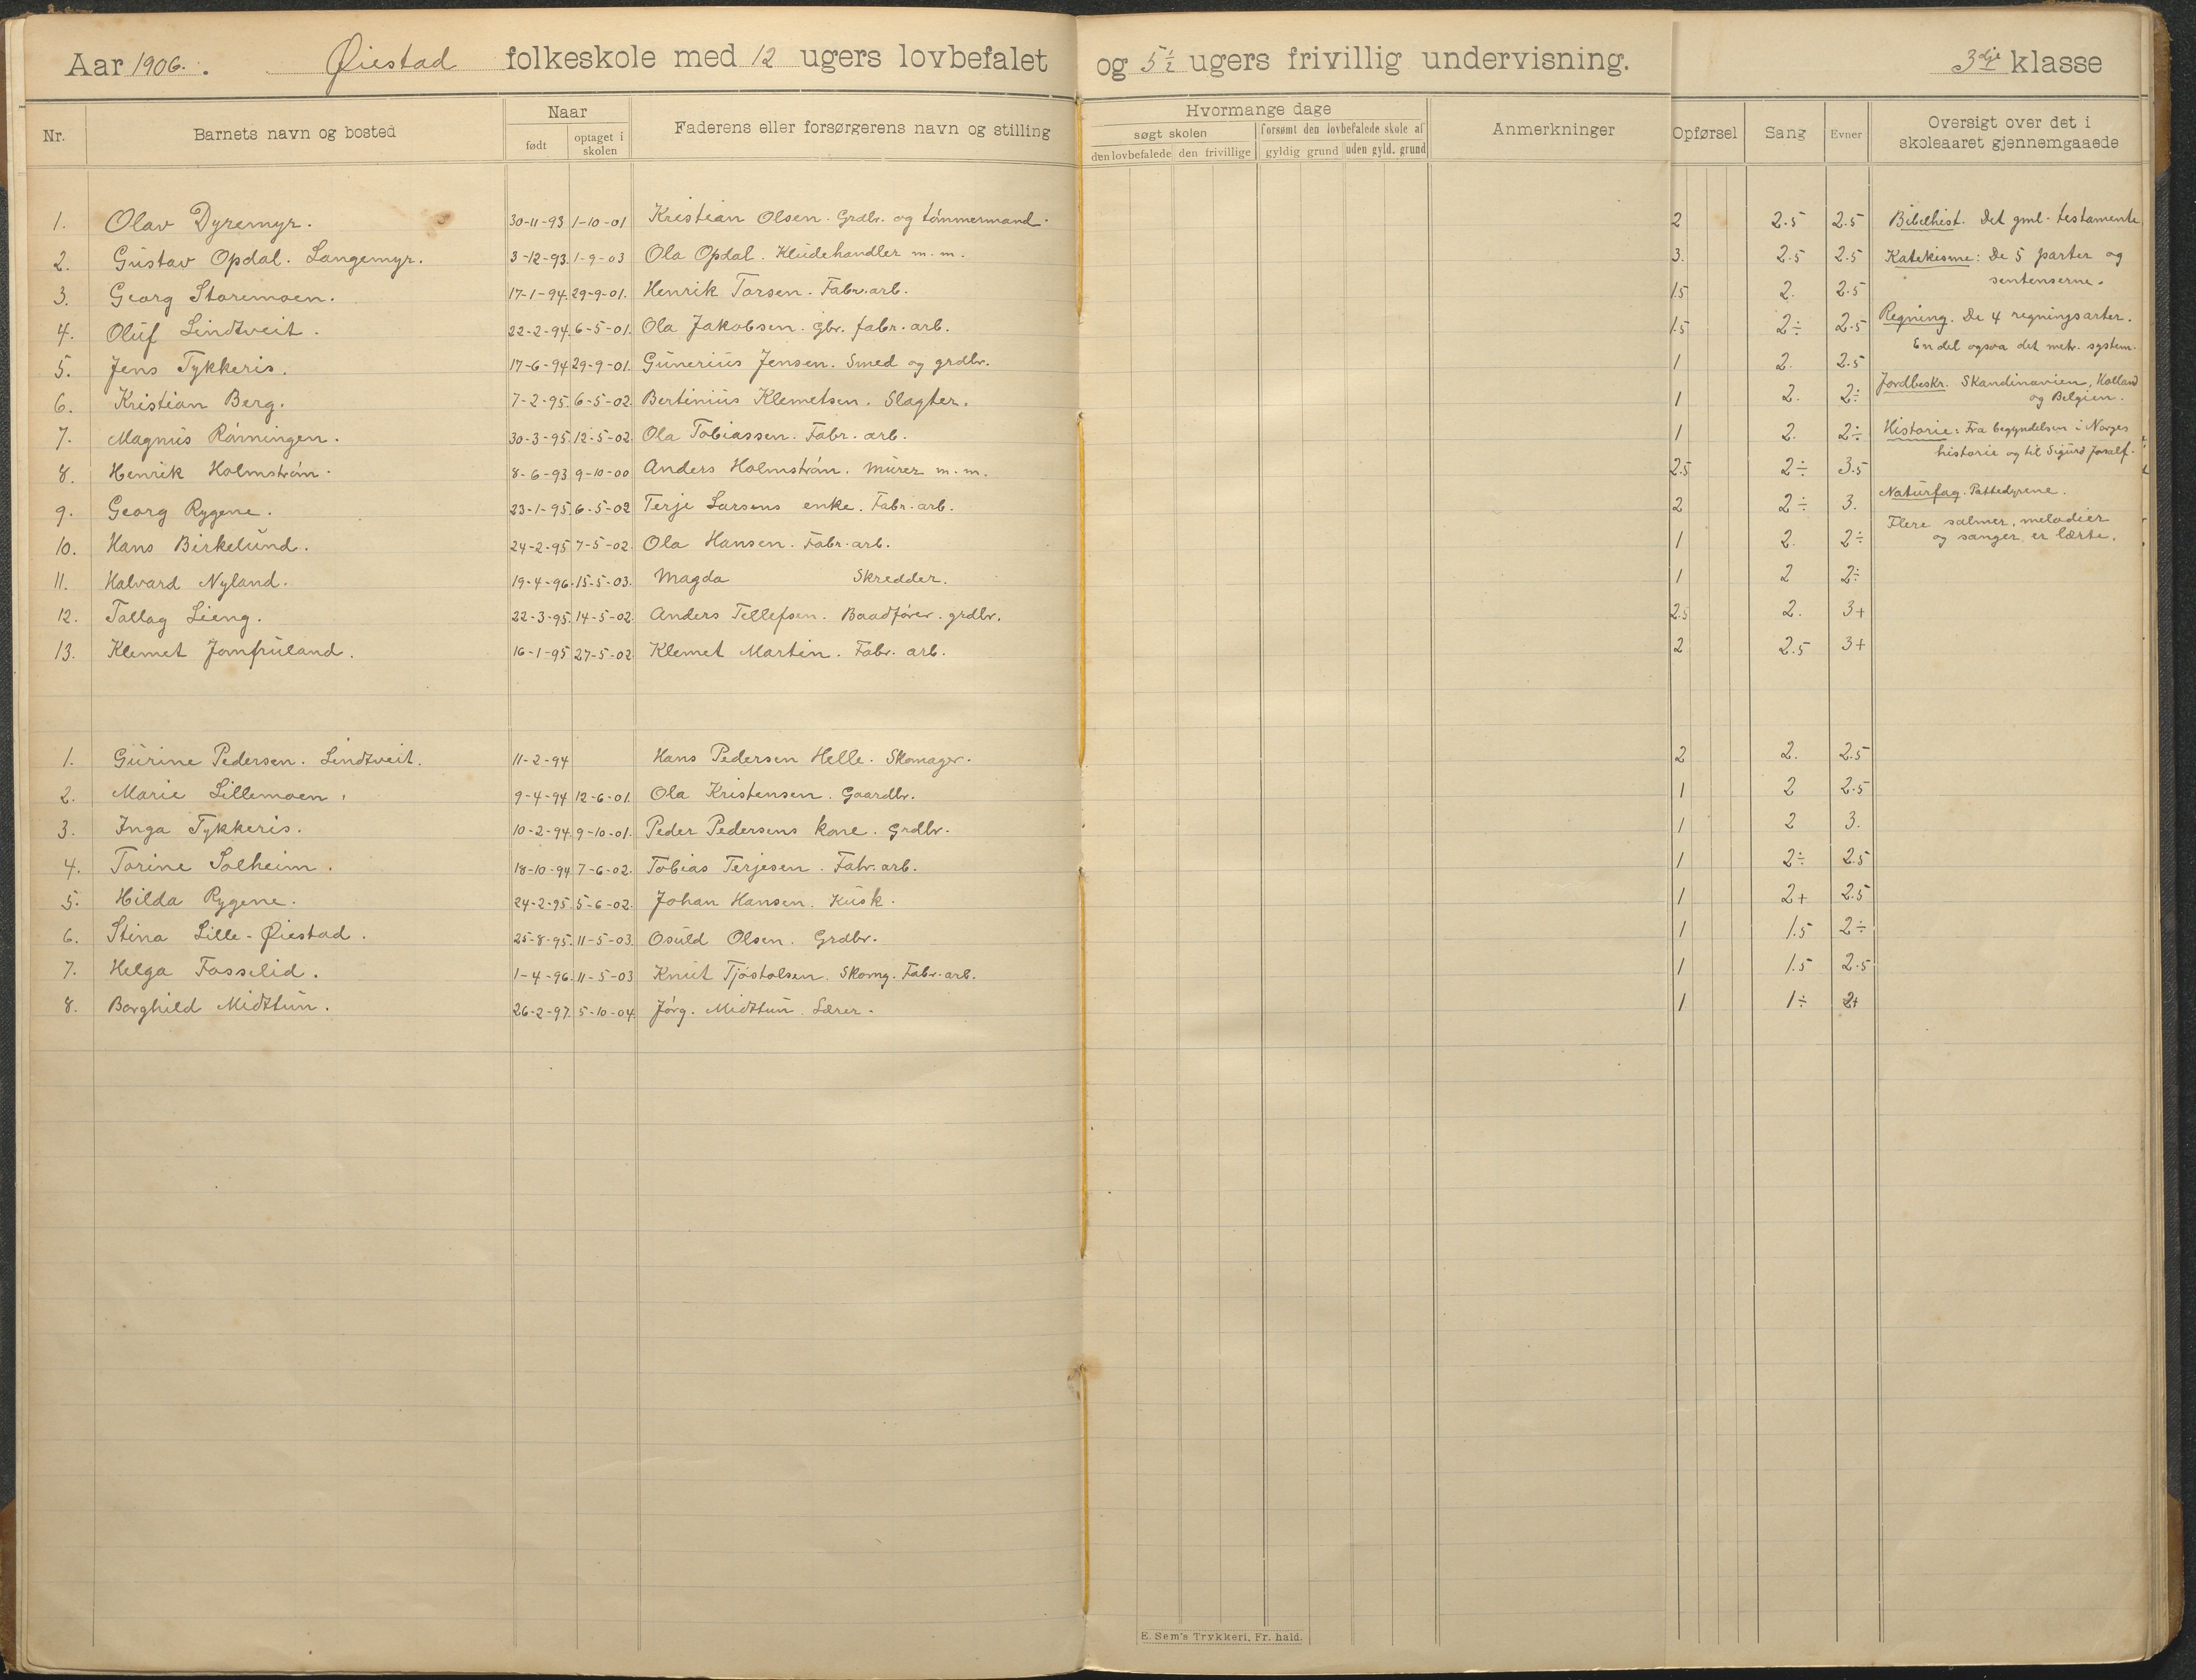 Aar 1906. Øiestad folkeskole med 12 ugers lovbefalet og 5½ ugers frivillig undervisning. 3dje klasse
Nr. Barnets navn og bosted Naar født optaget i skolen Faderens eller forsørgerens navn og stilling Hvormange dage søgt skolen den lovbefalede den frivillige forsømt den lovbefalede skole af gyldig grund uden gyld. grund Anmerkninger Opførsel Sang Evner Oversigt over det i skoleaaret gjennemgaaede
1. Olav Dyremyr. 30-11-93 1-10-01 Kristian Olsen. Grdbr. og tømmermand. 2 2.5 2.5
2. Gustav Opdal. Langemyr. 3-12-93. 1-9-03 Ola Opdal. Kludehandler m. m. 3. 2.5 2.5
3. Georg Storemoen. 17-1-94. 29-9-01. Henrik Torsen. Fabr. arb. 1.5 2. 2.5
4. Oluf Lindtveit. 22-2-94. 6-5-01. Ola Jakobsen. gbr. fabr. arb. 1.5 2÷ 2.5
5. Jens Tykkeris. 17-6-94 29-9-01. Gunerius Jensen. Smed og grdbr. 1 2. 2.5
6. Kristian Berg. 7-2-95. 6-5-02. Bertinius Klemetsen. Slagter. 1 2. 2÷
7. Magnus Rørningen. 30-3-95. 12-5-02. Ola Tobiassen. Fabr. arb. 1 2. 2÷
8. Henrik Holmstrøm. 8-6-93 9-10-00 Anders Holmstrøm. Murer m. m. 2.5 2÷ 3.5
9. Georg Rygene. 23-1-95. 6-5-02 Terje Larsens enke. Fabr. arb. 2 2÷ 3.
10. Hans Birkelund. 24-2-95 7-5-02. Ola Hansen. Fabr. arb. 1 2. 2÷
11. Halvard Nyland. 19-4-96. 15-5-03. Magda Skredder. 1 2 2÷
12. Tallag Lieng. 22-3-95. 14-5-02. Anders Tellefsen. Baadfører. grdbr. 2.5 2. 3+
13. Klemet Jomfruland. 16-1-95 27-5-02 Klemet Martin. Fabr. arb. 2 2.5 3+
1. Gurine Pedersen. Lindtveit. 11-2-94 Hans Pedersen Helle. Skomager. 2 2. 2.5
2. Marie Lillemoen. 9-4-94 12-6-01. Ola Kristensen. Gaardbr. 1 2 2.5
3. Inga Tykkeris. 10-2-94. 9-10-01. Peder Pedersens kone. Grdbr. 1 2 3.
4. Torine Solheim. 18-10-94 7-6-02. Tobias Terjesen. Fabr. arb. 1 2÷ 2.5
5. Hilda Rygene. 24-2-95 5-6-02. Johan Hansen. Kusk. 1 2+ 2.5
6. Stina Lille-Øiestad. 25-8-95. 11-5-03. Osuld Olsen. Grdbr. 1 1.5 2÷
7. Helga Fosselid. 1-4-96. 11-5-03 Knut Tjøstolsen. Skomg. Fabr. arb. 1 1.5 2.5
8. Borghild Midttun. 26-2-97. 5-10-04. Jørg. Midttun. Lærer. 1 1÷ 2+
Bibelhist. Det gml. testamente
Katekisme: De 5 parter og
sentenserne.
Regning. De 4 regningsarter.
En del ogsaa det metr. system.
Jordbeskr. Skandinavien, Holland
og Belgien.
Historie: Fra begyndelsen i Norges
historie og til Sigurd Jorsalf.
Naturfag. Pattedyrene.
Flere salmer, melodier
og sanger er lærte.
E. Sem's Trykkeri, Fr. hald.